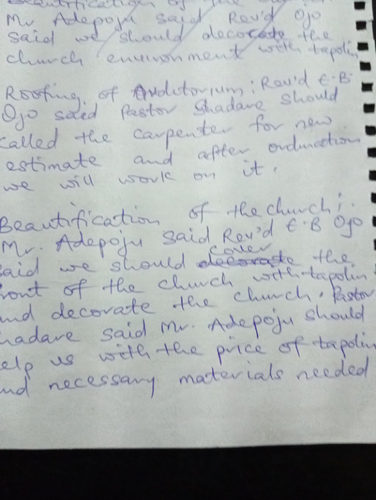 Beautification of the
Mr Adepoju said Rev'd Ojo
said we should decorate the
church environment with tapolin
Roofing of Auditorium: Rev'd E.B
Ojo said Pastor Shadare should
called the carpenter for new
estimate and after ordination
we will work on it.
Beautification of the church:
Mr. Adepoju said Rev'd E.B Ojo
said we should decorate cover the
ront of the church with tapolin
and decorate the church. Pastor
hadare said Mr. Adepoju should
elp us with the price of tapolin
nd necessary materials needed